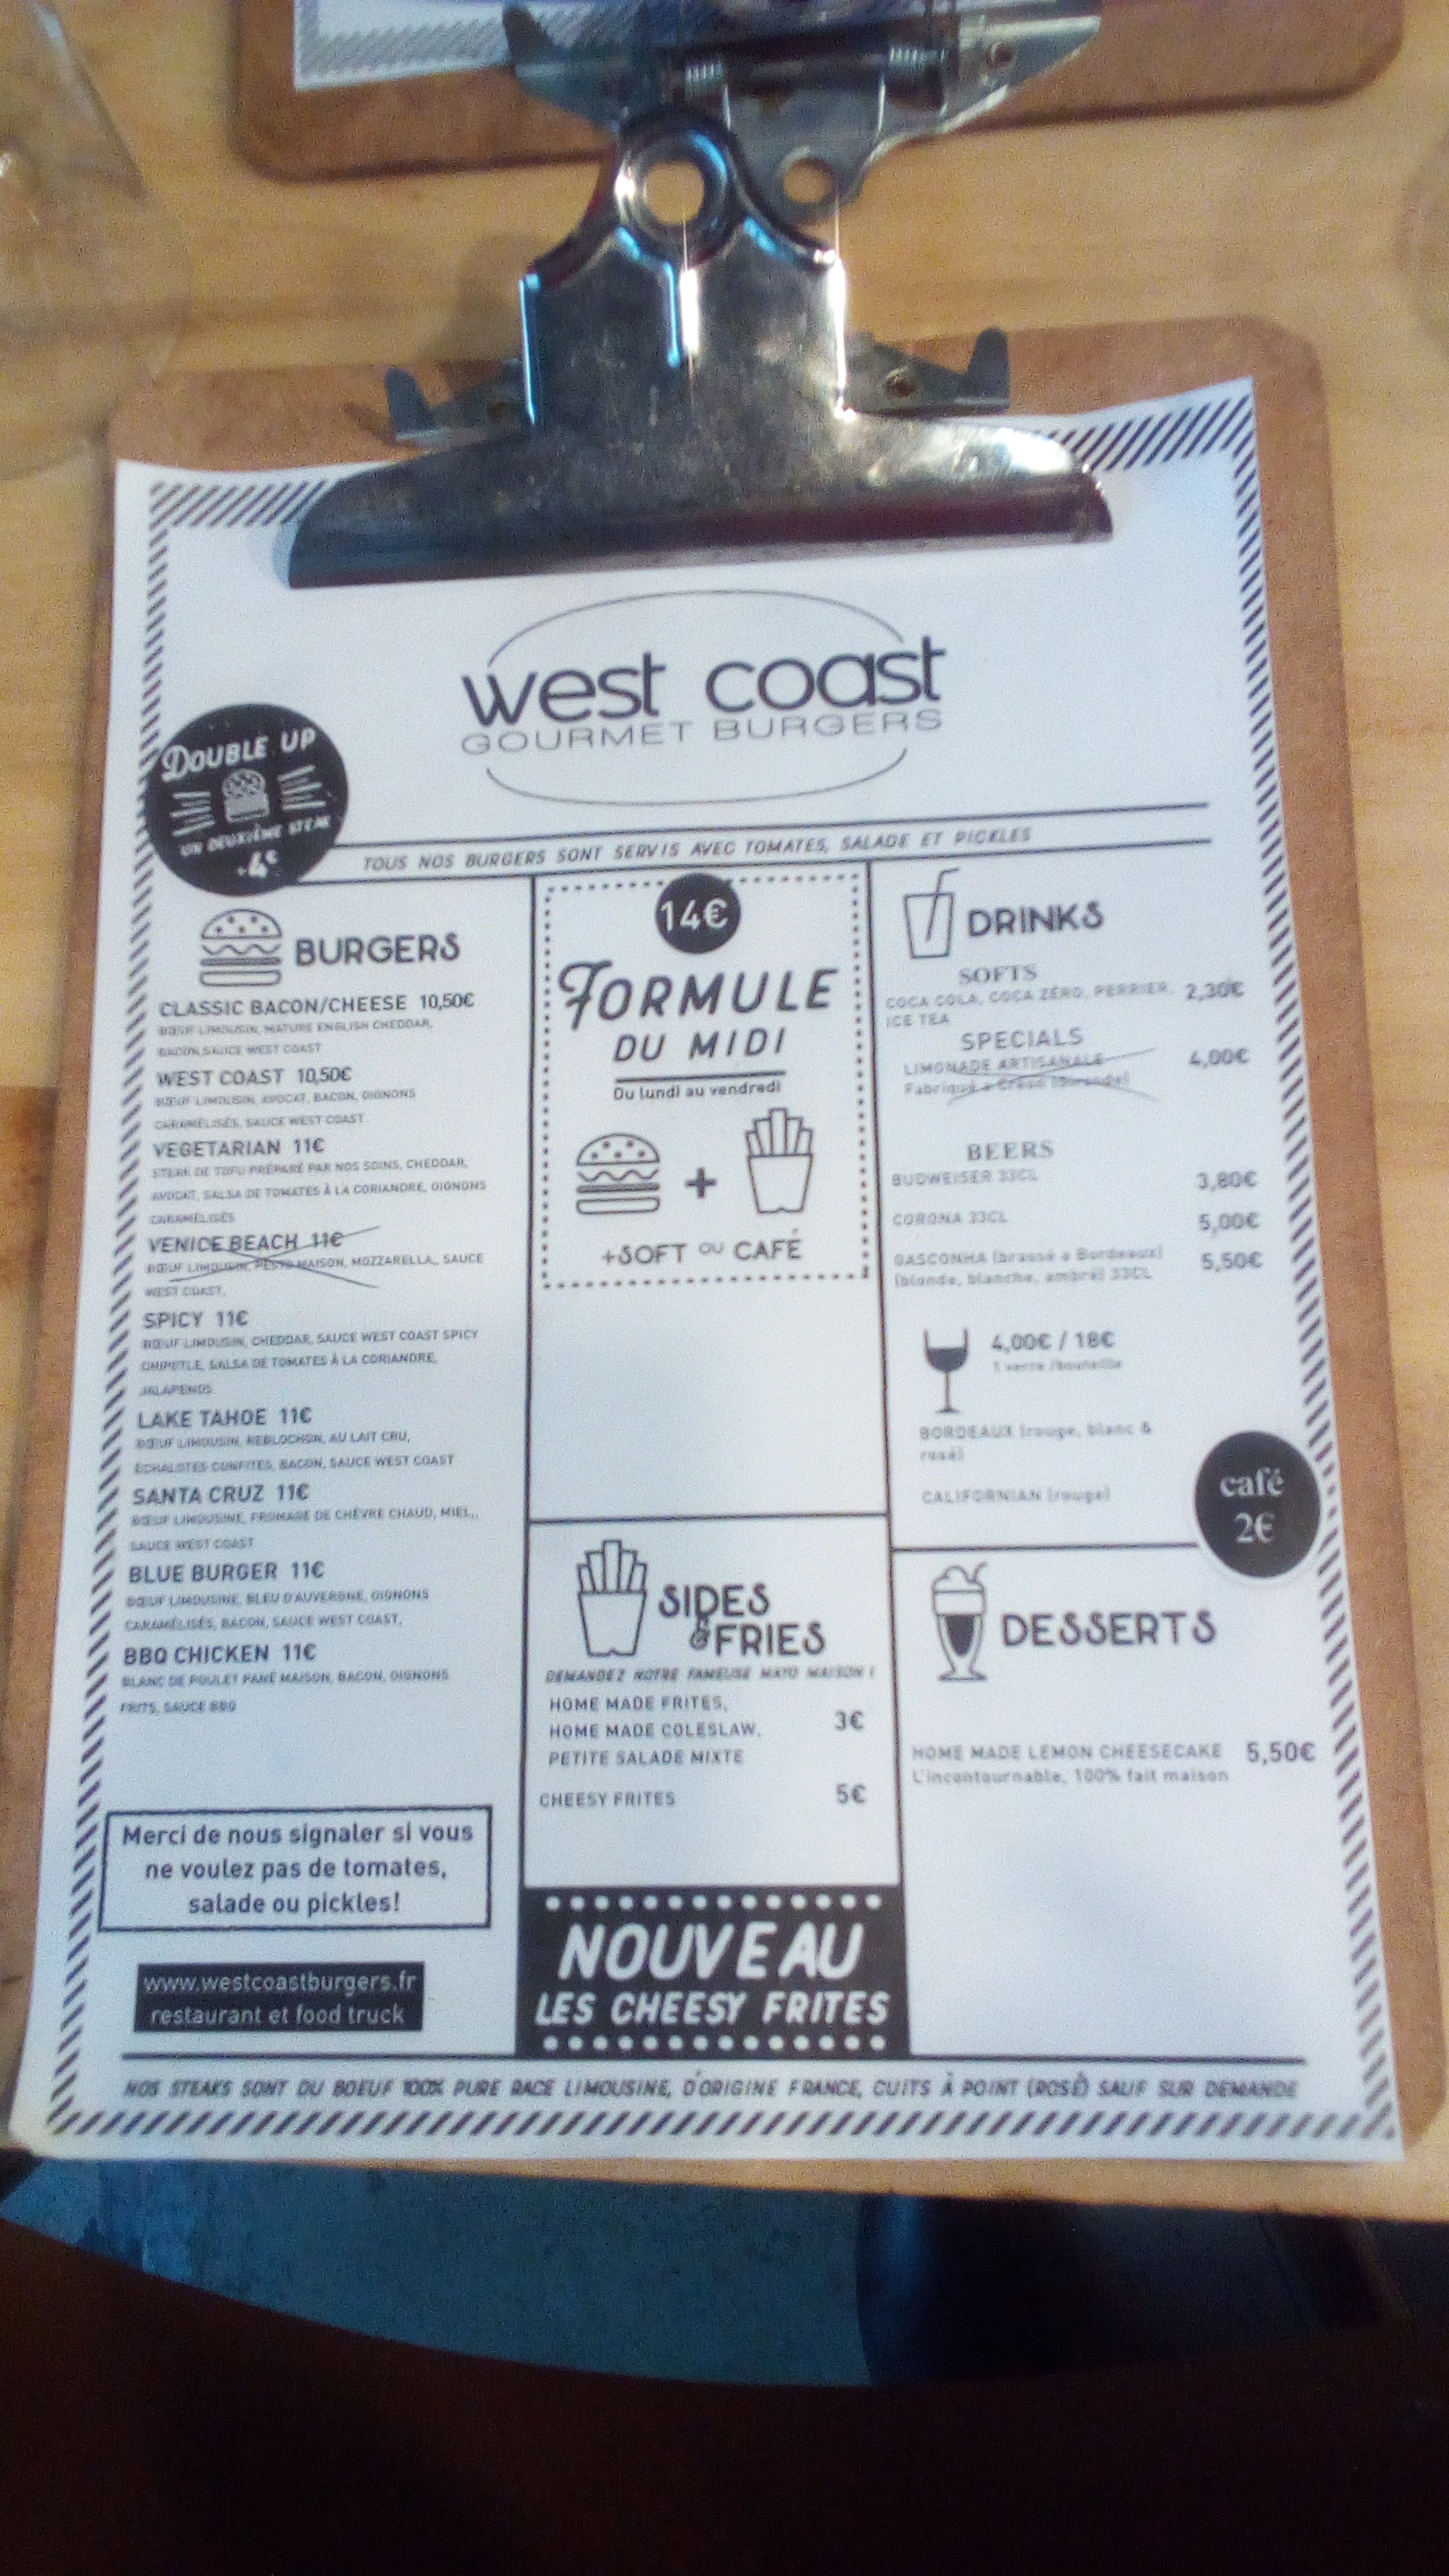 west coast
GOURMET BURGERS
DOUBLE UP
UN DEUXIÈME STEAK
+4€
TOUS NOS BURGERS SONT SERVIS AVEC TOMATES, SALADE ET PICKLES
BURGERS
CLASSIC BACON/CHEESE 10,50€
BŒUF LIMOUSIN, MATURE ENGLISH CHEDDAR,
BACON, SAUCE WEST COAST
WEST COAST 10,50€
BŒUF LIMOUSIN, AVOCAT, BACON, OIGNONS
CARAMÉLISÉS, SAUCE WEST COAST
VEGETARIAN 11€
STEAK DE TOFU PRÉPARÉ PAR NOS SOINS, CHEDDAR,
AVOCAT, SALSA DE TOMATES À LA CORIANDRE, OIGNONS
CARAMÉLISÉS
VENICE BEACH 11€
BŒUF LIMOUSIN, PESTO MAISON, MOZZARELLA, SAUCE
WEST COAST,
SPICY 11€
BŒUF LIMOUSIN, CHEDDAR, SAUCE WEST COAST SPICY
CHIPOTLE, SALSA DE TOMATES À LA CORIANDRE,
JALAPENOS
LAKE TAHOE 11€
BŒUF LIMOUSIN, REBLOCHON, AU LAIT CRU,
ÉCHALOTES CONFITES, BACON, SAUCE WEST COAST
SANTA CRUZ 11€
BŒUF LIMOUSINE, FROMAGE DE CHÈVRE CHAUD, MIEL,,
SAUCE WEST COAST
BLUE BURGER 11€
BŒUF LIMOUSINE, BLEU D'AUVERGNE, OIGNONS
CARAMÉLISÉS, BACON, SAUCE WEST COAST,
BBQ CHICKEN 11€
BLANC DE POULET PANÉ MAISON, BACON, OIGNONS
FRITS, SAUCE BBQ
Merci de nous signaler si vous
ne voulez pas de tomates,
salade ou pickles!
www.westcoastburgers.fr
restaurant et food truck
14€
FORMULE
DU MIDI
Du lundi au vendredi
+
+SOFT OU CAFÉ
SIDES
& FRIES
DEMANDEZ NOTRE FAMEUSE MAYO MAISON !
HOME MADE FRITES,
HOME MADE COLESLAW, 3€
PETITE SALADE MIXTE
CHEESY FRITES 5€
NOUVEAU
LES CHEESY FRITES
DRINKS
SOFTS
COCA COLA, COCA ZÉRO, PERRIER, 2,30€
ICE TEA
SPECIALS
LIMONADE ARTISANALE 4,00€
Fabriqué a
BEERS
BUDWEISER 33CL 3,80€
CORONA 33CL 5,00€
GASCONHA (brassé a Bordeaux) 5,50€
(blonde, blanche, ambré) 33CL
4,00€ / 18€
1 verre /bouteille
BORDEAUX (rouge, blanc &
rosé)
CALIFORNIAN (rouge)
café
2€
DESSERTS
HOME MADE LEMON CHEESECAKE 5,50€
L'incontournable, 100% fait maison
NOS STEAKS SONT DU BOEUF 100% PURE RACE LIMOUSINE, D'ORIGINE FRANCE, CUITS À POINT (ROSÉ) SAUF SUR DEMANDE